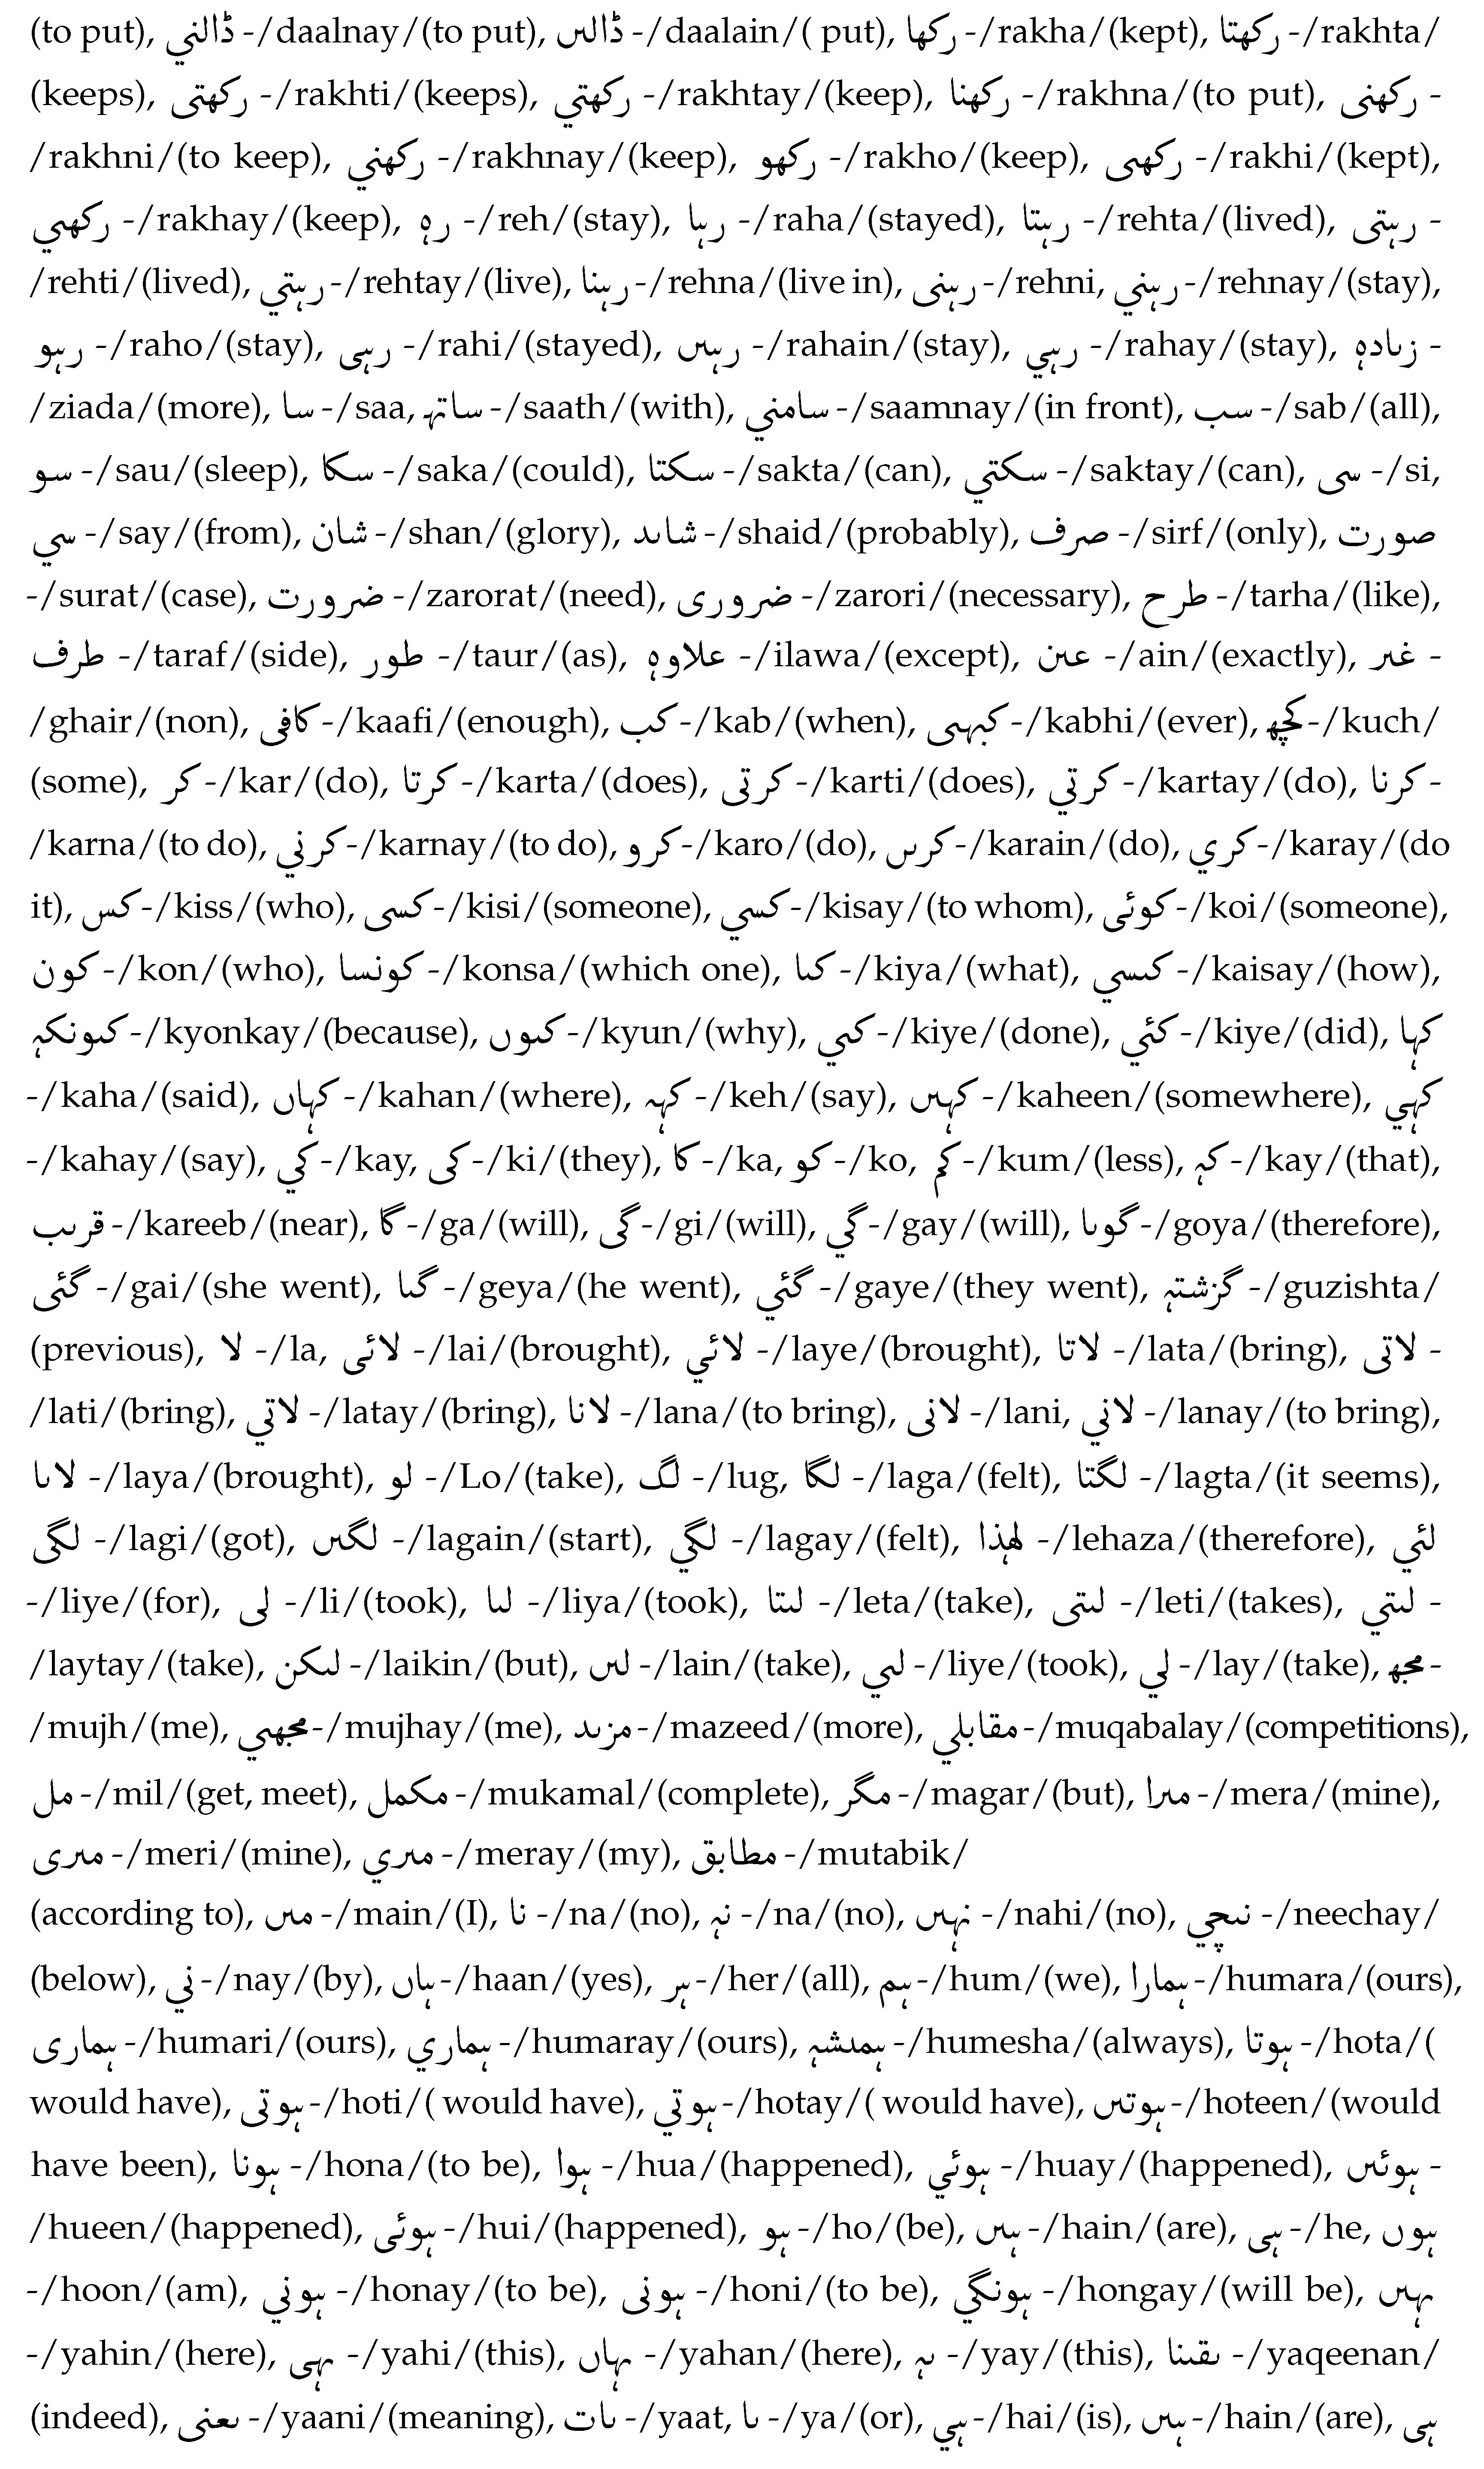 (to put), ڈالني -/daalnay/(to put), ڈالیں -/daalain/( put), رکھا -/rakha/(kept), رکھتا -/rakhta/
(keeps), رکھتی -/rakhti/(keeps), رکھتي -/rakhtay/(keep), رکھنا -/rakhna/(to put), رکھنی -
/rakhni/(to keep), رکھني -/rakhnay/(keep), رکھو -/rakho/(keep), رکھی -/rakhi/(kept),
رکھي -/rakhay/(keep), رہ -/reh/(stay), رہا -/raha/(stayed), رہتا -/rehta/(lived), رہتی -
/rehti/(lived), رہتي -/rehtay/(live), رہنا -/rehna/(live in), رہنی -/rehni, رہني -/rehnay/(stay),
رہو -/raho/(stay), رہی -/rahi/(stayed), رہیں -/rahain/(stay), رہي -/rahay/(stay), زیادہ -
/ziada/(more), سا -/saa, ساتہ -/saath/(with), سامني -/saamnay/(in front), سب -/sab/(all),
سو -/sau/(sleep), سکا -/saka/(could), سکتا -/sakta/(can), سکتي -/saktay/(can), سی -/si,
سي -/say/(from), شان -/shan/(glory), شاید -/shaid/(probably), صرف -/sirf/(only), صورت
-/surat/(case), ضرورت -/zarorat/(need), ضروری -/zarori/(necessary), طرح -/tarha/(like),
طرف -/taraf/(side), طور -/taur/(as), علاوہ -/ilawa/(except), عین -/ain/(exactly), غیر -
/ghair/(non), کافی -/kaafi/(enough), کب -/kab/(when), کبہی -/kabhi/(ever), کچھ -/kuch/
(some), کر -/kar/(do), کرتا -/karta/(does), کرتی -/karti/(does), کرتي -/kartay/(do), کرنا -
/karna/(to do), کرني -/karnay/(to do), کرو -/karo/(do), کریں -/karain/(do), کري -/karay/(do
it), کس -/kiss/(who), کسی -/kisi/(someone), کسي -/kisay/(to whom), کوئی -/koi/(someone),
کون -/kon/(who), کونسا -/konsa/(which one), کیا -/kiya/(what), کیسي -/kaisay/(how),
کیونکہ -/kyonkay/(because), کیوں -/kyun/(why), کیي -/kiye/(done), کئي -/kiye/(did), کہا
-/kaha/(said), کہاں -/kahan/(where), کہہ -/keh/(say), کہیں -/kaheen/(somewhere), کہي
-/kahay/(say), کي -/kay, کی -/ki/(they), کا -/ka, کو -/ko, کم -/kum/(less), کہ -/kay/(that),
قریب -/kareeb/(near), گا -/ga/(will), گی -/gi/(will), گي -/gay/(will), گویا -/goya/(therefore),
گئی -/gai/(she went), گیا -/geya/(he went), گئي -/gaye/(they went), گزشتہ -/guzishta/
(previous), لا -/la, لائی -/lai/(brought), لائي -/laye/(brought), لاتا -/lata/(bring), لاتی -
/lati/(bring), لاتي -/latay/(bring), لانا -/lana/(to bring), لانی -/lani, لاني -/lanay/(to bring),
لایا -/laya/(brought), لو -/Lo/(take), لگ -/lug, لگا -/laga/(felt), لگتا -/lagta/(it seems),
لگی -/lagi/(got), لگیں -/lagain/(start), لگي -/lagay/(felt), لہٰذا -/lehaza/(therefore), لئي
-/liye/(for), لی -/li/(took), لیا -/liya/(took), لیتا -/leta/(take), لیتی -/leti/(takes), لیتي -
/laytay/(take), لیکن -/laikin/(but), لیں -/lain/(take), لیي -/liye/(took), لي -/lay/(take), مجھ -
/mujh/(me), مجھي -/mujhay/(me), مزید -/mazeed/(more), مقابلي -/muqabalay/(competitions),
مل -/mil/(get, meet), مکمل -/mukamal/(complete), مگر -/magar/(but), میرا -/mera/(mine),
میری -/meri/(mine), میري -/meray/(my), مطابق -/mutabik/
(according to), میں -/main/(I), نا -/na/(no), نہ -/na/(no), نہیں -/nahi/(no), نیچي -/neechay/
(below), ني -/nay/(by), ہاں -/haan/(yes), ہر -/her/(all), ہم -/hum/(we), ہمارا -/humara/(ours),
ہماری -/humari/(ours), ہماري -/humaray/(ours), ہمیشہ -/humesha/(always), ہوتا -/hota/(
would have), ہوتی -/hoti/( would have), ہوتي -/hotay/( would have), ہوتیں -/hoteen/(would
have been), ہونا -/hona/(to be), ہوا -/hua/(happened), ہوئي -/huay/(happened), ہوئیں -
/hueen/(happened), ہوئی -/hui/(happened), ہو -/ho/(be), ہیں -/hain/(are), ہی -/he, ہوں
-/hoon/(am), ہوني -/honay/(to be), ہونی -/honi/(to be), ہونگي -/hongay/(will be), یہیں
-/yahin/(here), یہی -/yahi/(this), یہاں -/yahan/(here), یہ -/yay/(this), یقینا -/yaqeenan/
(indeed), یعنی -/yaani/(meaning), یات -/yaat, یا -/ya/(or), ہي -/hai/(is), ہیں -/hain/(are), ہی